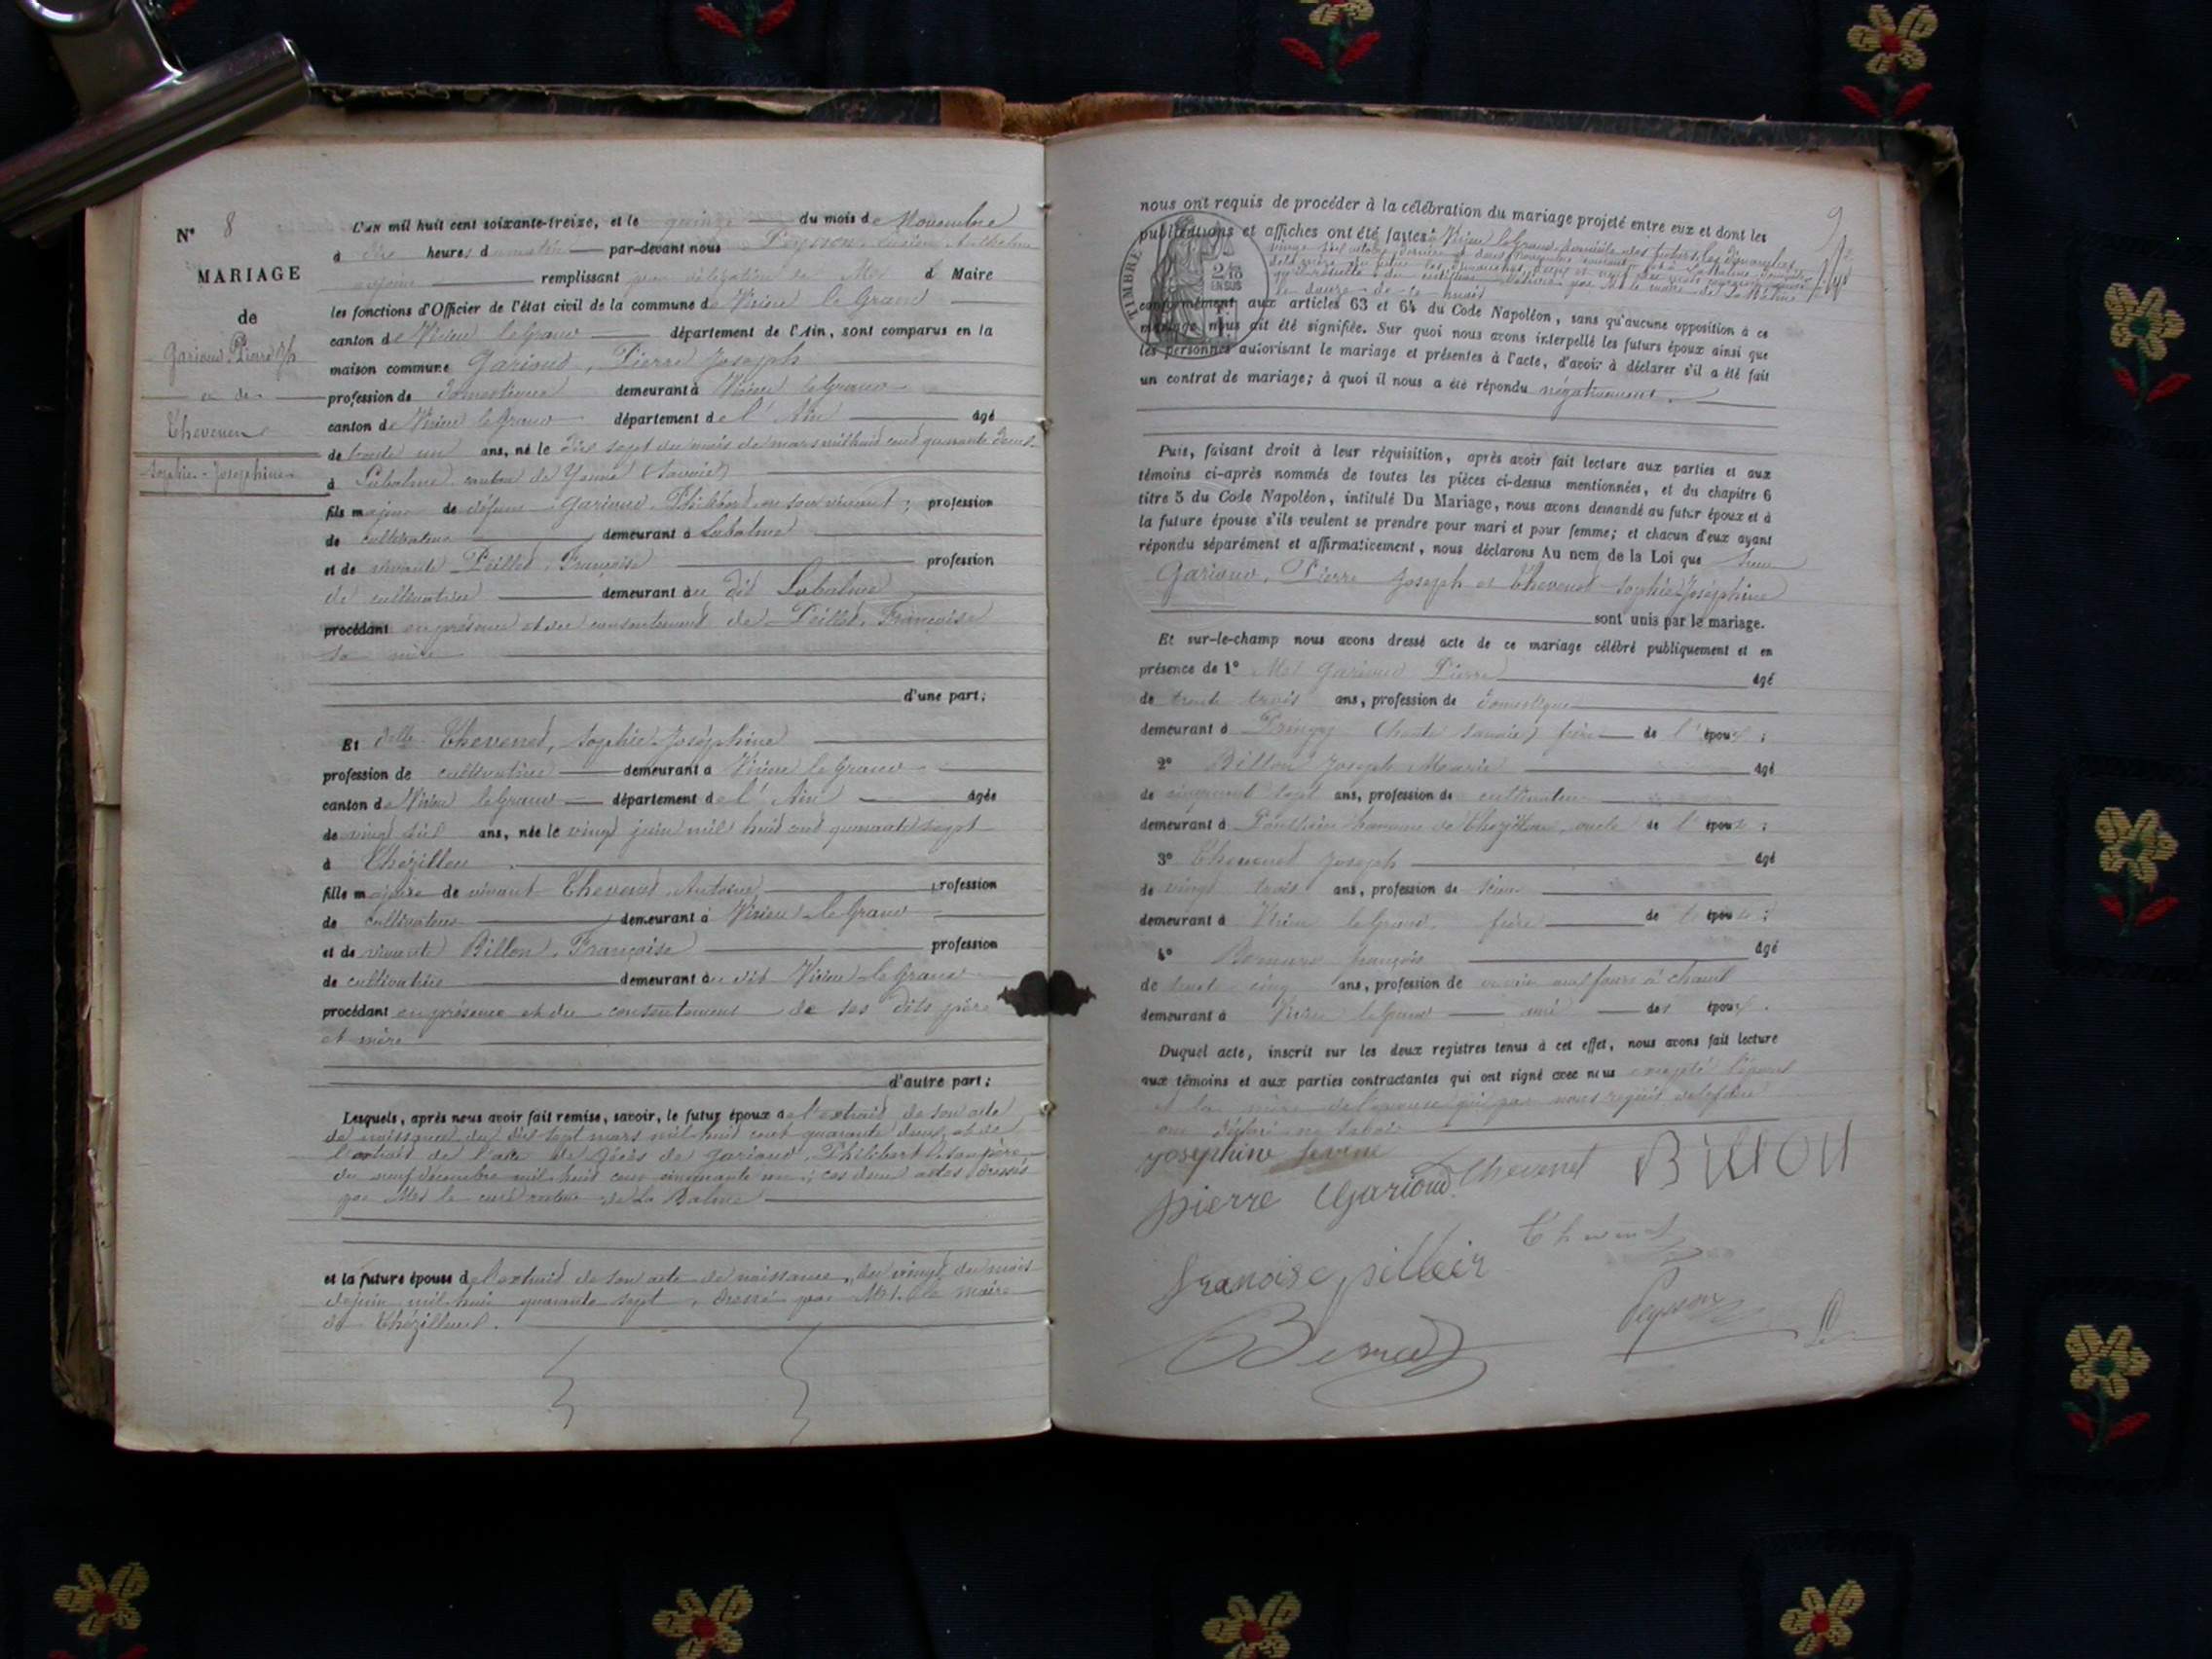 N° 8
MARIAGE
de
Garioud Pierre Jph
et de
Thevenet
Sophie-Joséphine
L'AN mil huit cent soixante-treize, et le quinze du mois de Novembre
à dix heures d matin par-devant nous Peysson Anthelme
adjoint remplissant par délégation de Mr l Maire
les fonctions d'Officier de l'état civil de la commune de Virieu le Grand
canton de Virieu le Grand département de l'Ain, sont comparus en la
maison commune Garioud, Pierre Joseph
profession de domestique demeurant à Virieu le Grand
canton de Virieu le Grand département de l'Ain âgé
de trente un ans, né le dix sept du mois de mars mil huit cent quarante deux
à Labalme canton de Yenne (Savoie)
fils majeur de défunt Garioud Philibert en son vivant; profession
de cultivateur demeurant à Labalme
et de vivante Peillet, Françoise profession
de cultivatrice demeurant au dit Labalme
procédant en présence et du consentement de Peillet, Françoise
sa mère
d'une part;
Et delle Thevenet, Sophie-Joséphine
profession de cultivatrice demeurant à Virieu le Grand
canton de Virieu le Grand département de l'Ain âgée
de vingt six ans, née le vingt juin mil huit cent quarante sept
à Chézillieu
fille majeure de vivant Thevenet Antoine profession
de cultivateur demeurant à Virieu-le-Grand
et de vivante Billon, Françoise profession
de cultivatrice demeurant au dit Virieu-le-Grand
procédant en présence et du consentement de ses dits père
et mère
d'autre part;
Lesquels, après nous avoir fait remise, savoir, le futur époux de l'extrait de son acte
de naissance du dix sept mars mil huit cent quarante deux, et de
l'extrait de l'acte de décès de Garioud, Philibert, son père,
du neuf décembre mil huit cent cinquante un; ces deux actes dressés
par Mr le curé recteur de La Balme
et la future épouse de l'extrait de son acte de naissance, du vingt du mois
de juin mil huit quarante sept, dressé par Mr. le maire
de Chézillieu.
nous ont requis de procéder à la célébration du mariage projeté entre eux et dont les
publications et affiches ont été faites à Virieu le Grand, domicile des futurs, les dimanches
TIMBRE
2/10
EN SUS
9
conformément aux articles 63 et 64 du Code Napoléon, sans qu'aucune opposition à ce
mariage nous ait été signifiée. Sur quoi nous avons interpellé les futurs époux ainsi que
les personnes autorisant le mariage et présentes à l'acte, d'avoir à déclarer s'il a été fait
un contrat de mariage; à quoi il nous a été répondu négativement.
Puis, faisant droit à leur réquisition, après avoir fait lecture aux parties et aux
témoins ci-après nommés de toutes les pièces ci-dessus mentionnées, et du chapitre 6
titre 5 du Code Napoléon, intitulé Du Mariage, nous avons demandé au futur époux et à
la future épouse s'ils veulent se prendre pour mari et pour femme; et chacun d'eux ayant
répondu séparément et affirmativement, nous déclarons Au nom de la Loi que
Garioud, Pierre Joseph et Thevenet Sophie Joséphine
sont unis par le mariage.
Et sur-le-champ nous avons dressé acte de ce mariage célébré publiquement et en
présence de 1° Mr Garioud Pierre âgé
de trente trois ans, profession de domestique
demeurant à Pringy (haute Savoie) frère de l'époux;
2° Billon Joseph Marie âgé
de cinquante sept ans, profession de cultivateur
demeurant à commune de Chézillieu, oncle de l'épouse;
3° Thevenet Joseph âgé
de vingt trois ans, profession de
demeurant à Virieu le Grand, frère de l'épouse;
4° François âgé
de trente cinq ans, profession de ouvrier aux fours à chaux
demeurant à Virieu le Grand ami des époux.
Duquel acte, inscrit sur les deux registres tenus à cet effet, nous avons fait lecture
aux témoins et aux parties contractantes qui ont signé avec nous excepté l'époux
et la mère de l'épouse qui par nous requis de le faire
ont déclaré ne savoir
Joséphine
pierre Garioud Thevenet Billon
Thevenet
franoise pilleir
Peysson